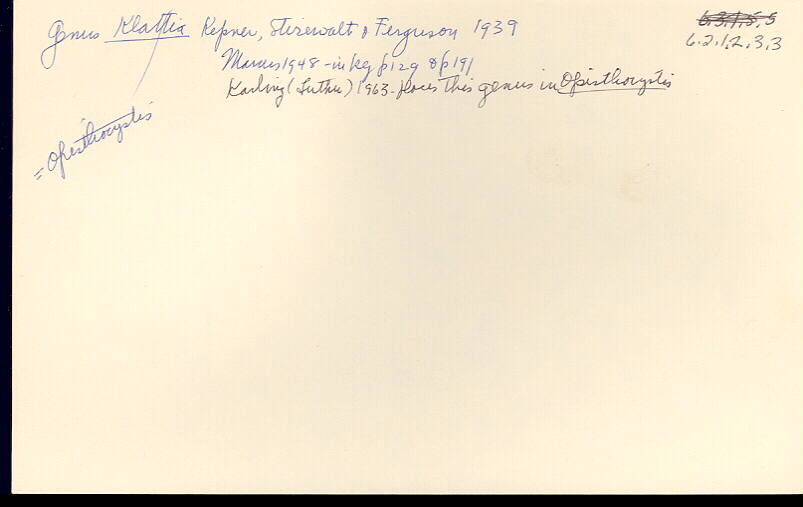 Genus Klattia Kepner, Stirewalt & Ferguson 1939
6.3.1.5.5
6.2.1.2.3.3
Marcus 1948 - in key p129 & p191
Karling (Luther) 1963 - places this genus in Opisthocystis
= Opisthocystis